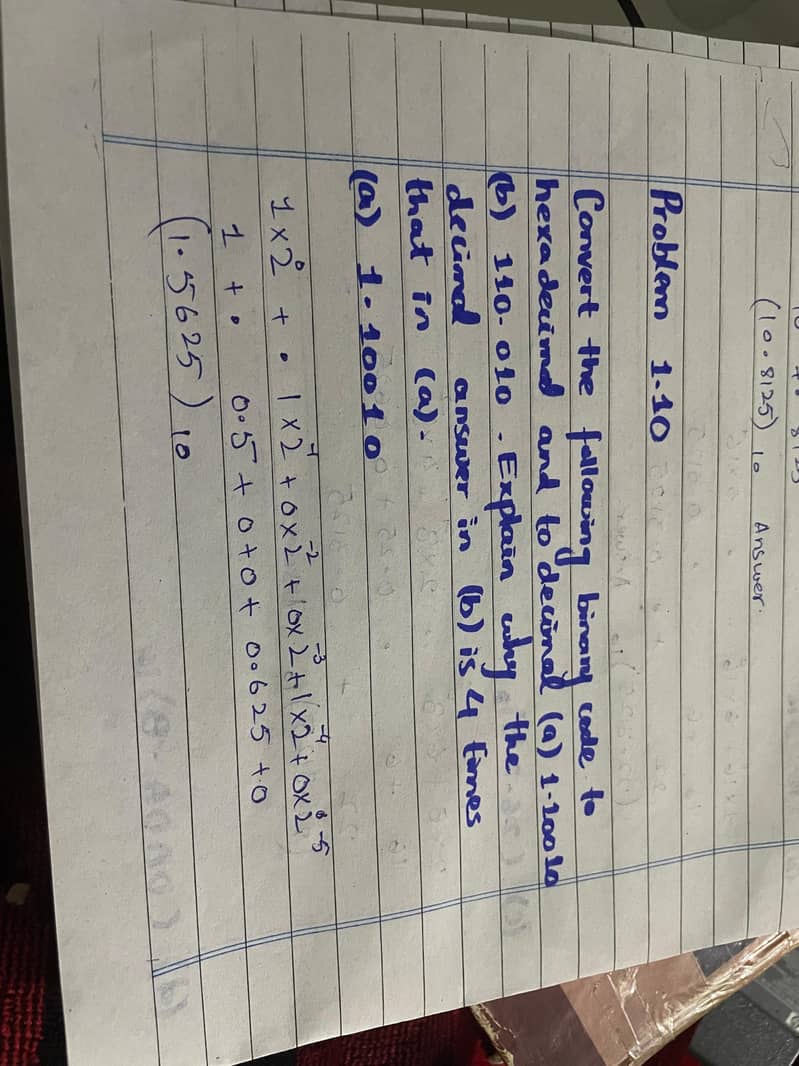 (10.8125) 10 Answer.
Problem 1.10
Convert the following binary code to
hexadecimal and to decimal (a) 1.10010
(b) 110.010. Explain why the
decimal answer in (b) is 4 times
that in (a).
(a) 1.10010
1x2⁰ + . 1x2⁻¹ + 0x2⁻² + 0x2⁻³ + 1x2⁻⁴ + 0x2⁻⁵
1 + . 0.5 + 0 + 0 + 0.0625 + 0
(1.5625) 10